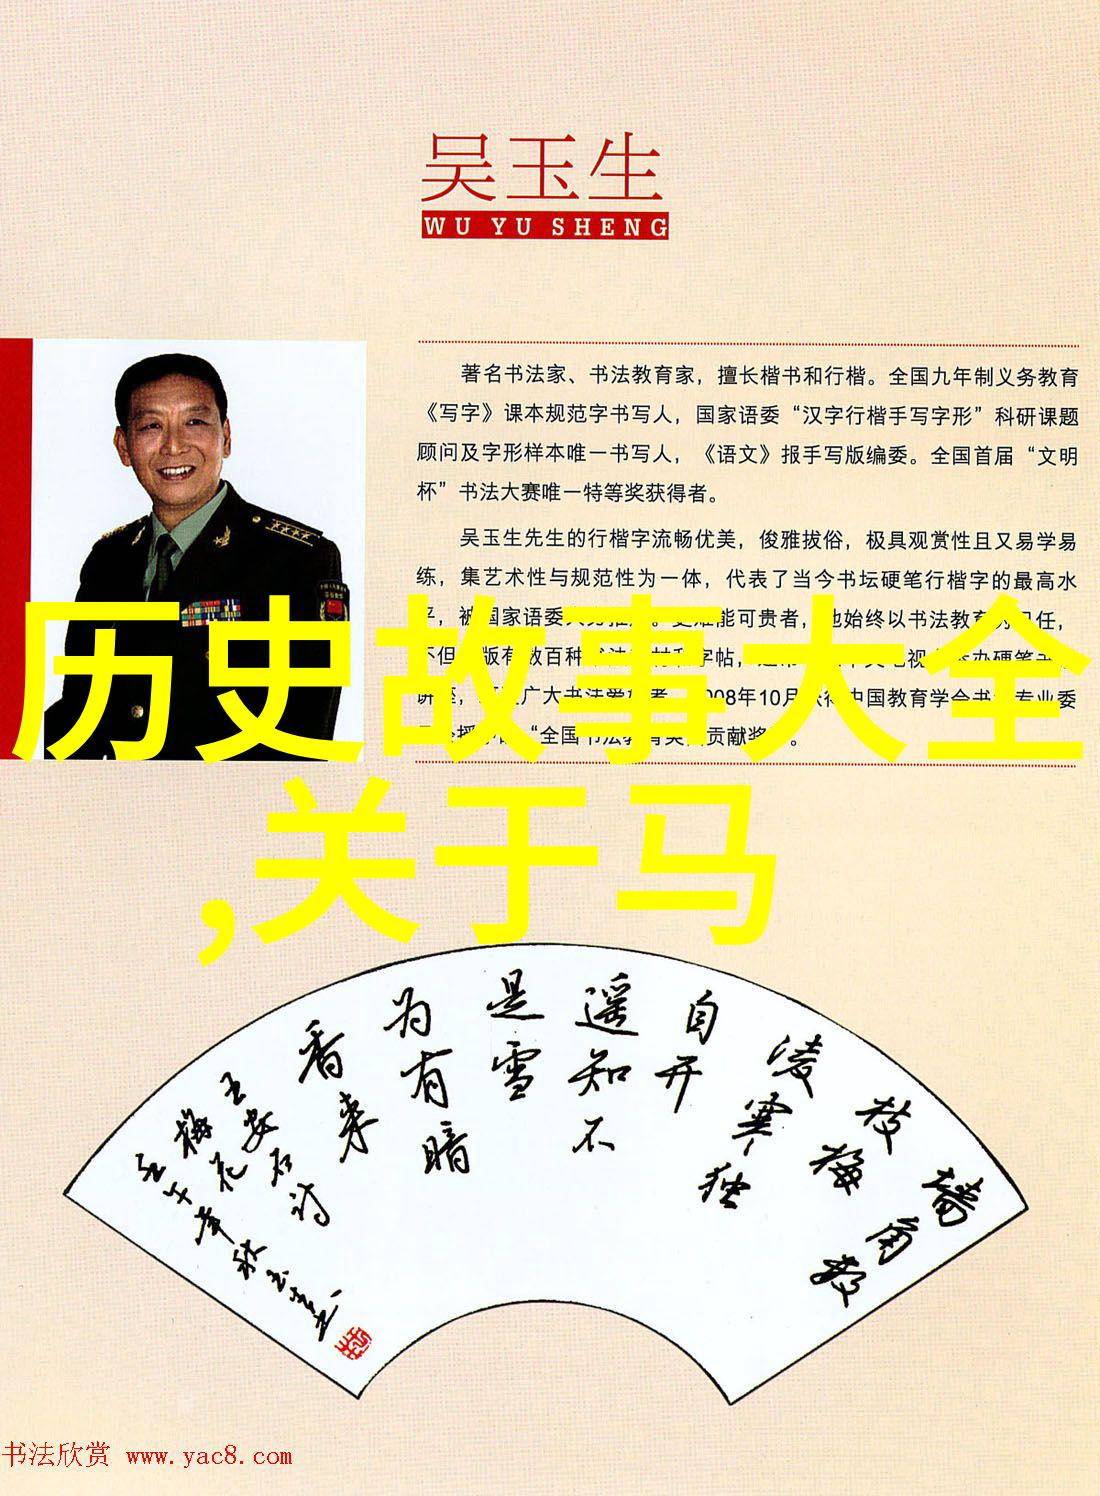 吴玉生
WU YU SHENG
著名书法家、书法教育家，擅长楷书和行楷。全国九年制义务教育
《写字》课本规范字书写人，国家语委“汉字行楷手写字形”科研课题
顾问及字形样本唯一书写人，《语文》报手写版编委。全国首届“文明
杯”书法大赛唯一特等奖获得者。
吴玉生先生的行楷字流畅优美，俊雅拔俗，极具观赏性且又易学易
练，集艺术性与规范性为一体，代表了当今书坛硬笔行楷字的最高水
被国家语委 能可贵者，他始终以书法教育 任，
讲座， 广大书法爱 2008年10月 中国教育学会书 专业委
“全国书法教育 贡献奖”。
历史故事大全
,关于马
墙角数
枝梅
凌寒独
自开
遥知不
是雪
为有暗
香来
王安石诗
梅花
壬午年秋玉生书
书法欣赏 www.yac8.com